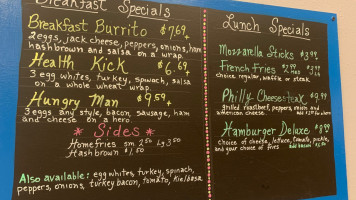 Breakfast Specials
Breakfast Burrito $7.69+
2 eggs, jack cheese, peppers, onions, ham
hashbrown and salsa on a wrap.
Health Kick $6.69+
3 egg whites, turkey, spinach, salsa
on a whole wheat wrap.
Hungry Man $9.59+
3 eggs any style, bacon, sausage, ham
and cheese on a hero.
* Sides *
Homefries sm 2.50 Lg 3.50
Hashbrown $1.50
Also available: egg whites, turkey, spinach,
peppers, onions, turkey bacon, tomato, Kielbasa
Lunch Specials
Mozzarella Sticks
French Fries
choice regular, waffle or steak
Philly Cheesesteak
grilled roastbeef, peppers, onion and
american cheese.
Hamburger Deluxe
choice of cheese, lettuce, tomato, pickle,
and your choice of fries